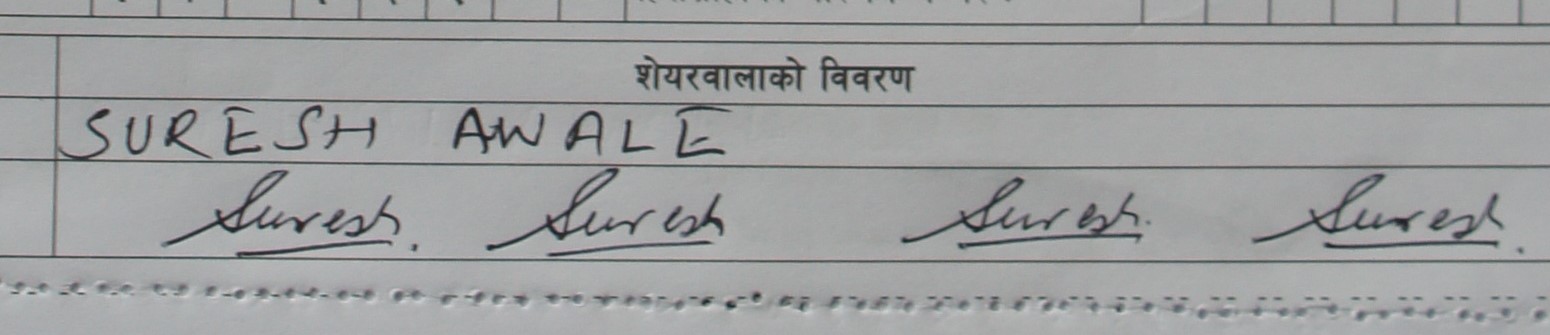 शेयरवालाको विवरण
SURESH AWALE
Suresh. Suresh Suresh. Suresh.